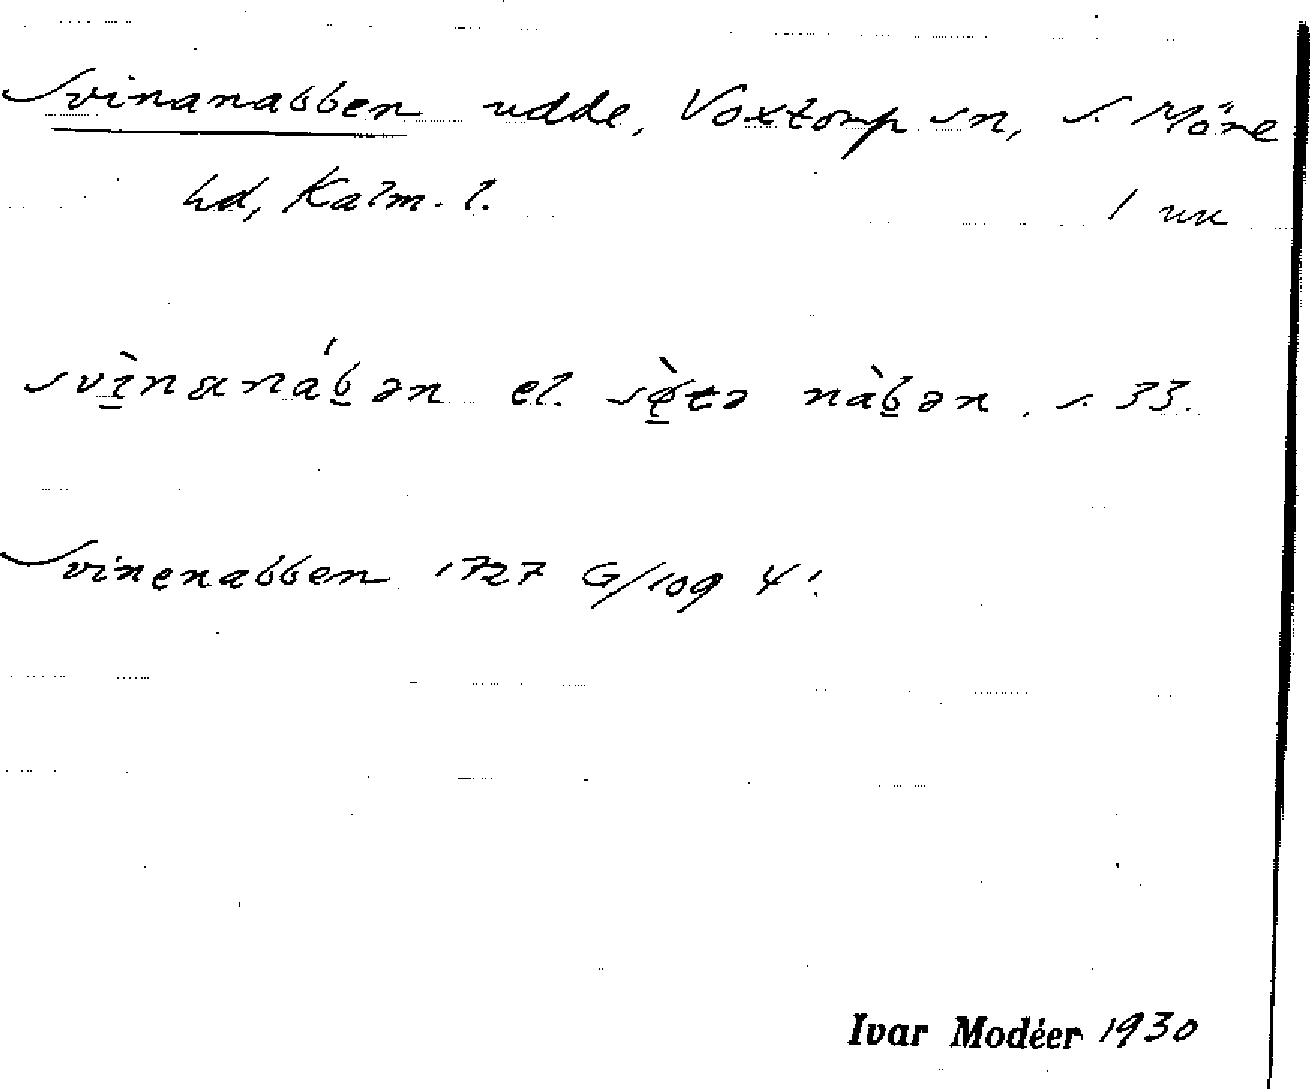 Svinanabben udde, Voxtorp sn, S. Möre
hd, Kalm. l.
1 uu
svìnanábən el. sø̀tə nàbən. s. 33.
Svinenabben 1727 G/109 4'.
Ivar Modéer 1930